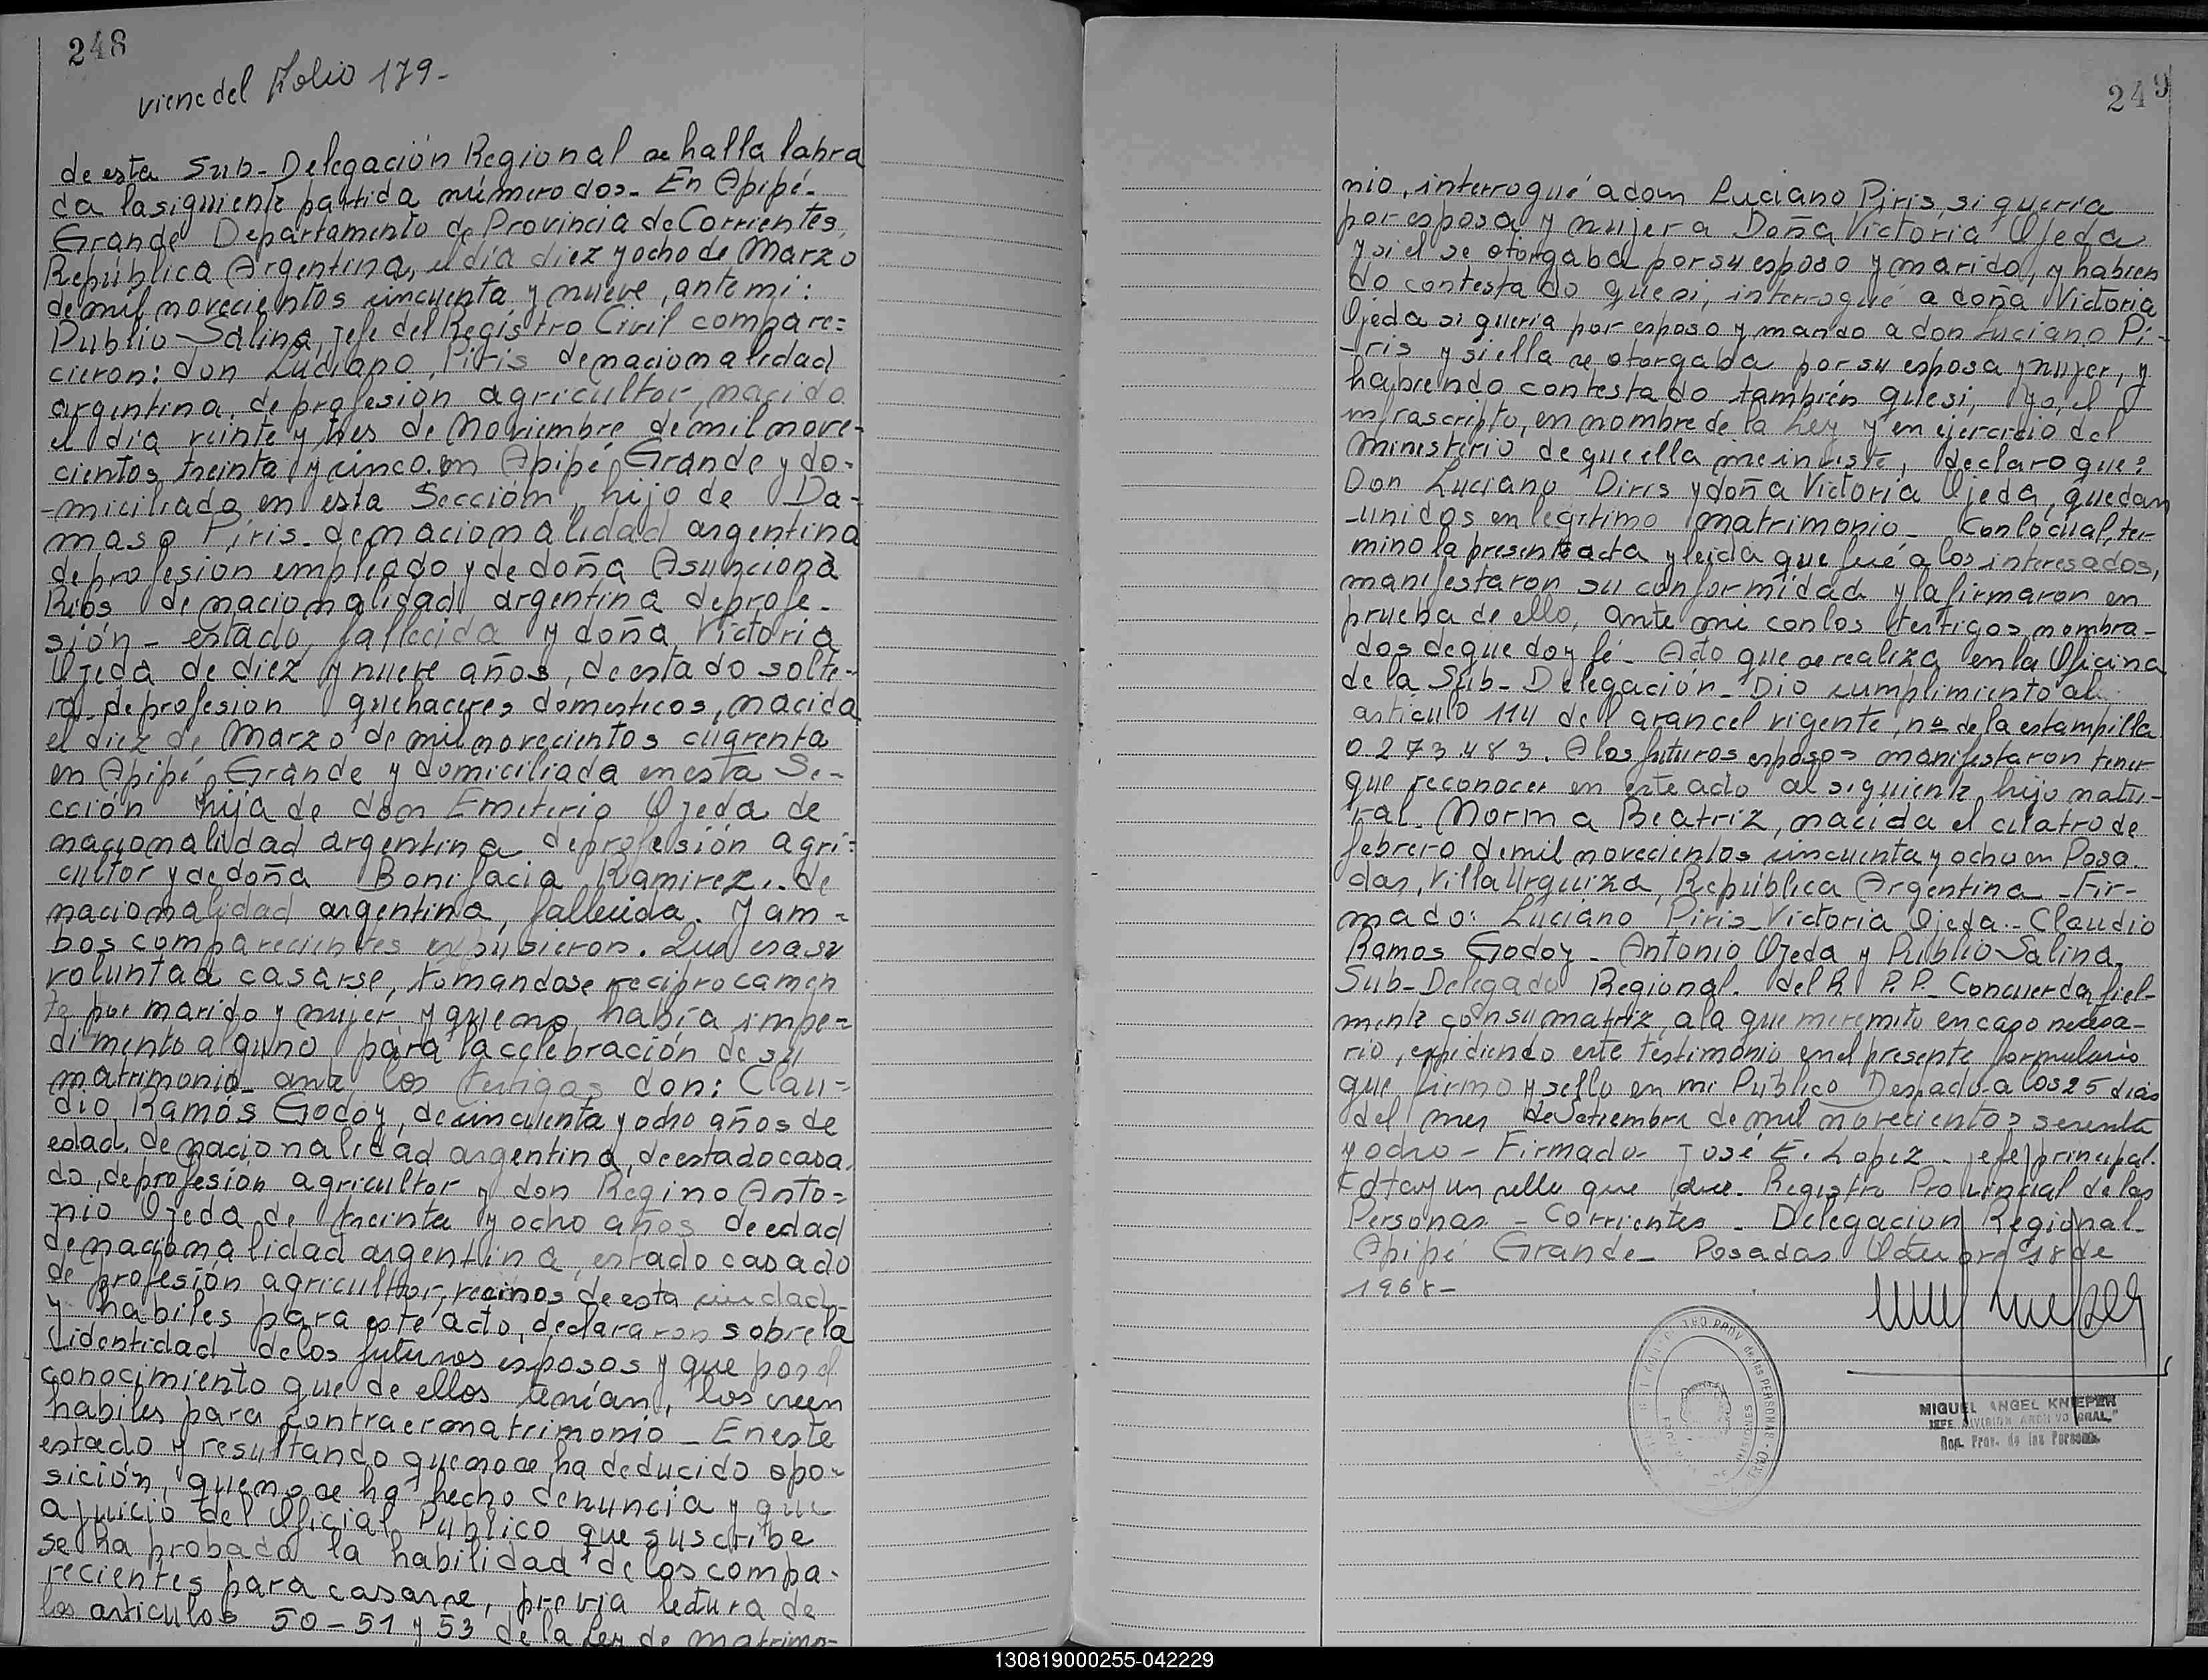 248
viene del Folio 179-
de esta Sub-Delegación Regional se halla labra
da la siguiente partida número dos- En Apipé-
Grande Departamento de Provincia de Corrientes,
República Argentina, el día diez y ocho de Marzo
de mil novecientos cincuenta y nueve, ante mi:
Publio Salina, jefe del Registro Civil compare=
cieron: don Luciano Piris de nacionalidad
argentina, de profesión agricultor, nacido
el día veinte y tres de Noviembre de mil nove-
cientos treinta y cinco en Apipé Grande y do-
-miciliado en esta Sección, hijo de Da-
maso Piris- de nacionalidad argentina
de profesion empleado y de doña Asunciona
Rios de nacionalidad argentina de profe-
sión - estado, fallecida y doña Victoria
Ojeda de diez y nueve años, de estado solte-
ra- de profesion quehaceres domesticos, nacida
el diez de Marzo de mil novecientos cuarenta
en Apipé Grande y domiciliada en esta Se-
cción hija de don Emeterio Ojeda de
nacionalidad argentina de profesión agri=
cultor y de doña Bonifacia Ramirez.. de
nacionalidad argentina, fallecida. Y am=
bos comparecientes expusieron. Que era su
voluntad casarse, tomandose reciprocamen
te por marido y mujer y que no había impe=
dimento alguno para la celebración de su
matrimonio- ante los testigos don: Clau=
dio Ramós Godoy, de cincuenta y ocho años de
edad, de nacionalidad argentina, de estado casa
do, de profesión agricultor y don Regino Anto=
nio Ojeda de treinta y ocho años de edad
de nacionalidad argentina, estado casado
de profesión agricultor, vecinos de esta ciudad-
y habiles para este acto, declararon sobre la
identidad de los futuros esposos y que por el
conocimiento que de ellos tenían, los creen
habiles para contraer matrimonio - En este
estado y resultando que no se ha deducido opo-
sición, que no se ha hecho denuncia y que
a juicio del Oficial Publico que suscribe
se ha probado la habilidad de los compa-
recientes para casarse, previa lectura de
los articulos 50-51 y 53 de la Ley de matrimo-
249
nio, interrogué a don Luciano Piris, si quería
por esposa y mujer a Doña Victoria Ojeda
y si el se otorgaba por su esposo y marido, y habien
do contestado que si, interrogué a doña Victoria
Ojeda si queria por esposo y marido a don Luciano Pi-
-ris y si ella se otorgaba por su esposa y mujer, y
habiendo contestado también que si, Yo, el
infrascripto, en nombre de la Ley y en ejercicio del
ministerio de que ella me inviste, declaro que:
Don Luciano Piris y doña Victoria Ojeda, quedan
-unidos en legitimo matrimonio- Con lo cual, ter-
mino la presente acta y leida que fué a los interesados,
manifestaron su conformidad y la firmaron en
prueba de ello, ante mi con los testigos nombra-
dos de que doy fé- Acto que se realiza en la Oficina
de la Sub-Delegación- Dio cumplimiento al
articulo 114 del arancel vigente, nº de la estampilla
0.273.483. A los futuros esposos manifestaron tener
que reconocer en este acto al siguiente hijo natu-
ral- Norma Beatriz, nacida el cuatro de
febrero de mil novecientos cincuenta y ocho en Posa-
das, Villa Urquiza, República Argentina - Fir-
mado: Luciano Piris- Victoria Ojeda.- Claudio
Ramos Godoy - Antonio Ojeda y Publio Salina
Sub-Delegado Regional. del R P.P- Concuerda fiel-
mente con su matriz, a la que me remito en caso necesa-
rio, expidiendo este testimonio en el presente formulario
que firmo y sello en mi Publico Despacho a los 25 dias
del mes de Setiembre de mil novecientos sesenta
y ocho - Firmado- José E. Lopez - jefe principal.
Esta y un sello que dice- Registro Provincial de las
Personas - Corrientes - Delegacion Regional-
Apipé Grande- Posadas Octubre 18 de
1968-
MIGUEL ANGEL KNIEPER
JEFE DIVISION ARCHIVO GRAL.
Reg. Prov. de las Personas
130819000255-042229